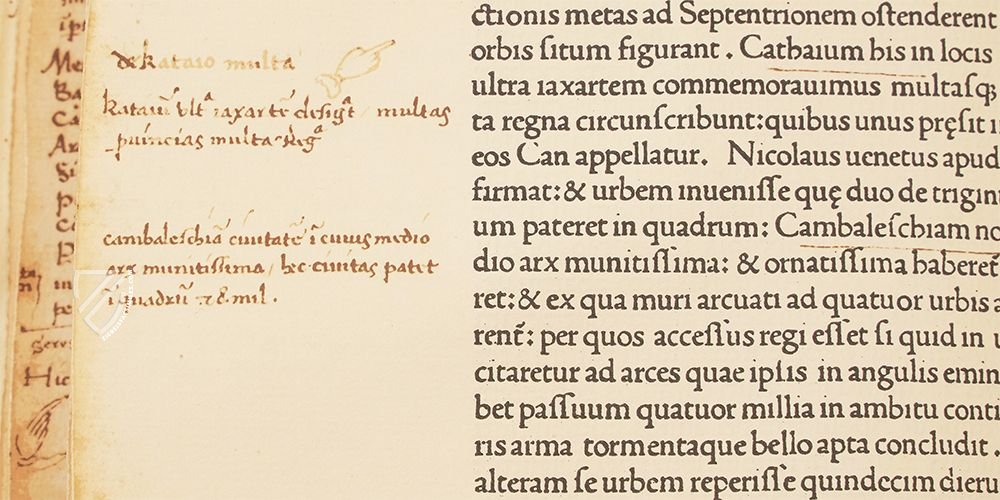 de kataio multa
kataiū vltᵃ iaxartē desigᵗ multas
puincias multa regᵃ
cambaleschiā ciuitatē ī cuius medio
arx munitissima / hec ciuitas patet
ī quadrū 28 mil.
ctionis metas ad Septentrionem oſtenderent
orbis ſitum figurant . Catbaium bis in locis
ultra iaxartem commemorauimus multaſqꝫ
ta regna circunſcribunt: quibus unus pręſit
eos Can appellatur. Nicolaus uenetus apud
firmat: & urbem inueniſſe quę duo de trigin
um pateret in quadrum: Cambaleſchiam no
dio arx munitiſſima: & ornatiſſima haberet̄
ret: & ex qua muri arcuati ad quatuor urbis
rent̄: per quos acceſſus regi eſſet ſi quid in
citaretur ad arces quae ipſis in angulis emin
bet paſſuum quatuor millia in ambitu conti
ris arma tormentaque bello apta concludit.
alteram ſe urbem reperiſſe quindecim dieru